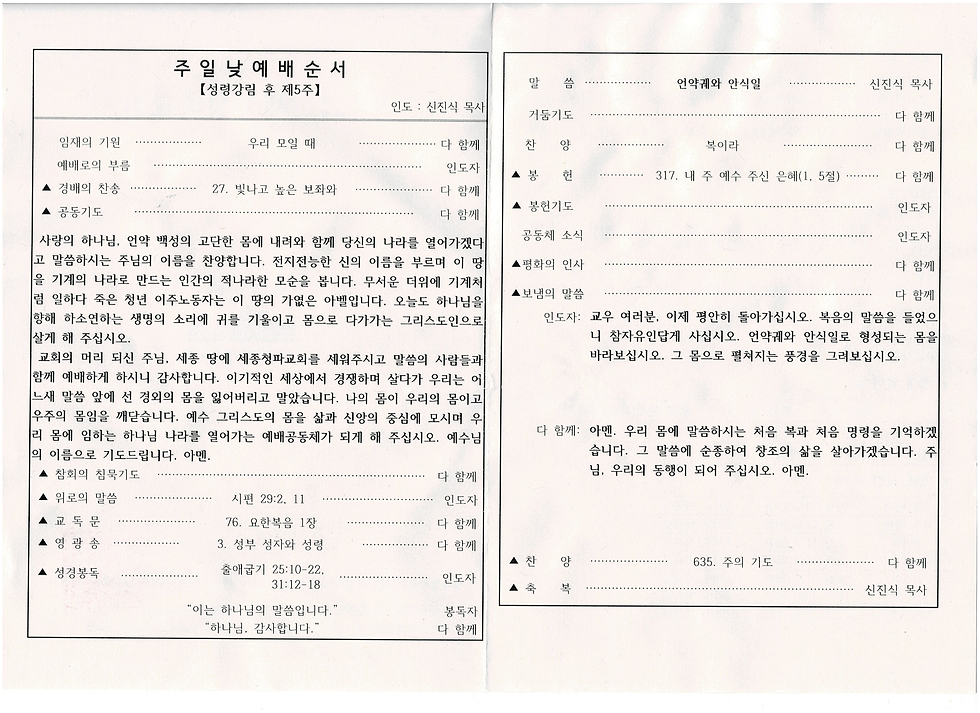 주일낮예배순서
【성령강림 후 제5주】
인도 : 신진식 목사
임재의 기원 ················ 우리 모일 때 ················ 다 함께
예배로의 부름 ················ 인도자
▲ 경배의 찬송 ················ 27. 빛나고 높은 보좌와 ················ 다 함께
▲ 공동기도 ················ 다 함께
사랑의 하나님, 언약 백성의 고단한 몸에 내려와 함께 당신의 나라를 열어가겠다
고 말씀하시는 주님의 이름을 찬양합니다. 전지전능한 신의 이름을 부르며 이 땅
을 기계의 나라로 만드는 인간의 적나라한 모순을 봅니다. 무서운 더위에 기계처
럼 일하다 죽은 청년 이주노동자는 이 땅의 가없은 아벨입니다. 오늘도 하나님을
향해 하소연하는 생명의 소리에 귀를 기울이고 몸으로 다가가는 그리스도인으로
살게 해 주십시오.
교회의 머리 되신 주님, 세종 땅에 세종청파교회를 세워주시고 말씀의 사람들과
함께 예배하게 하시니 감사합니다. 이기적인 세상에서 경쟁하며 살다가 우리는 어
느새 말씀 앞에 선 경외의 몸을 잃어버리고 말았습니다. 나의 몸이 우리의 몸이고
우주의 몸임을 깨닫습니다. 예수 그리스도의 몸을 삶과 신앙의 중심에 모시며 우
리 몸에 임하는 하나님 나라를 열어가는 예배공동체가 되게 해 주십시오. 예수님
의 이름으로 기도드립니다. 아멘.
▲ 참회의 침묵기도 ················ 다 함께
▲ 위로의 말씀 ················ 시편 29:2, 11 ················ 인도자
▲ 교 독 문 ················ 76. 요한복음 1장 ················ 다 함께
▲ 영 광 송 ················ 3. 성부 성자와 성령 ················ 다 함께
▲ 성경봉독 ················ 출애굽기 25:10-22, ················ 인도자
31:12-18
"이는 하나님의 말씀입니다." 봉독자
"하나님, 감사합니다." 다 함께
말 씀 ················ 언약궤와 안식일 ················ 신진식 목사
거둠기도 ················ 다 함께
찬 양 ················ 복이라 ················ 다 함께
▲ 봉 헌 ················ 317. 내 주 예수 주신 은혜(1, 5절) ········ 다 함께
▲ 봉헌기도 ················ 인도자
공동체 소식 ················ 인도자
▲평화의 인사 ················ 다 함께
▲보냄의 말씀 ················ 다 함께
인도자: 교우 여러분, 이제 평안히 돌아가십시오. 복음의 말씀을 들었으
니 참자유인답게 사십시오. 언약궤와 안식일로 형성되는 몸을
바라보십시오. 그 몸으로 펼쳐지는 풍경을 그려보십시오.
다 함께: 아멘. 우리 몸에 말씀하시는 처음 복과 처음 명령을 기억하겠
습니다. 그 말씀에 순종하여 창조의 삶을 살아가겠습니다. 주
님, 우리의 동행이 되어 주십시오. 아멘.
▲ 찬 양 ················ 635. 주의 기도 ················ 다 함께
▲ 축 복 ················ 신진식 목사